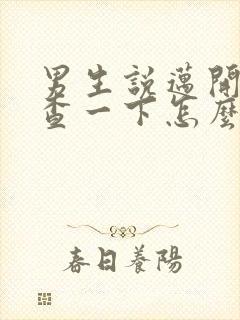 男生說邁開
查一下怎麼
春日養陽